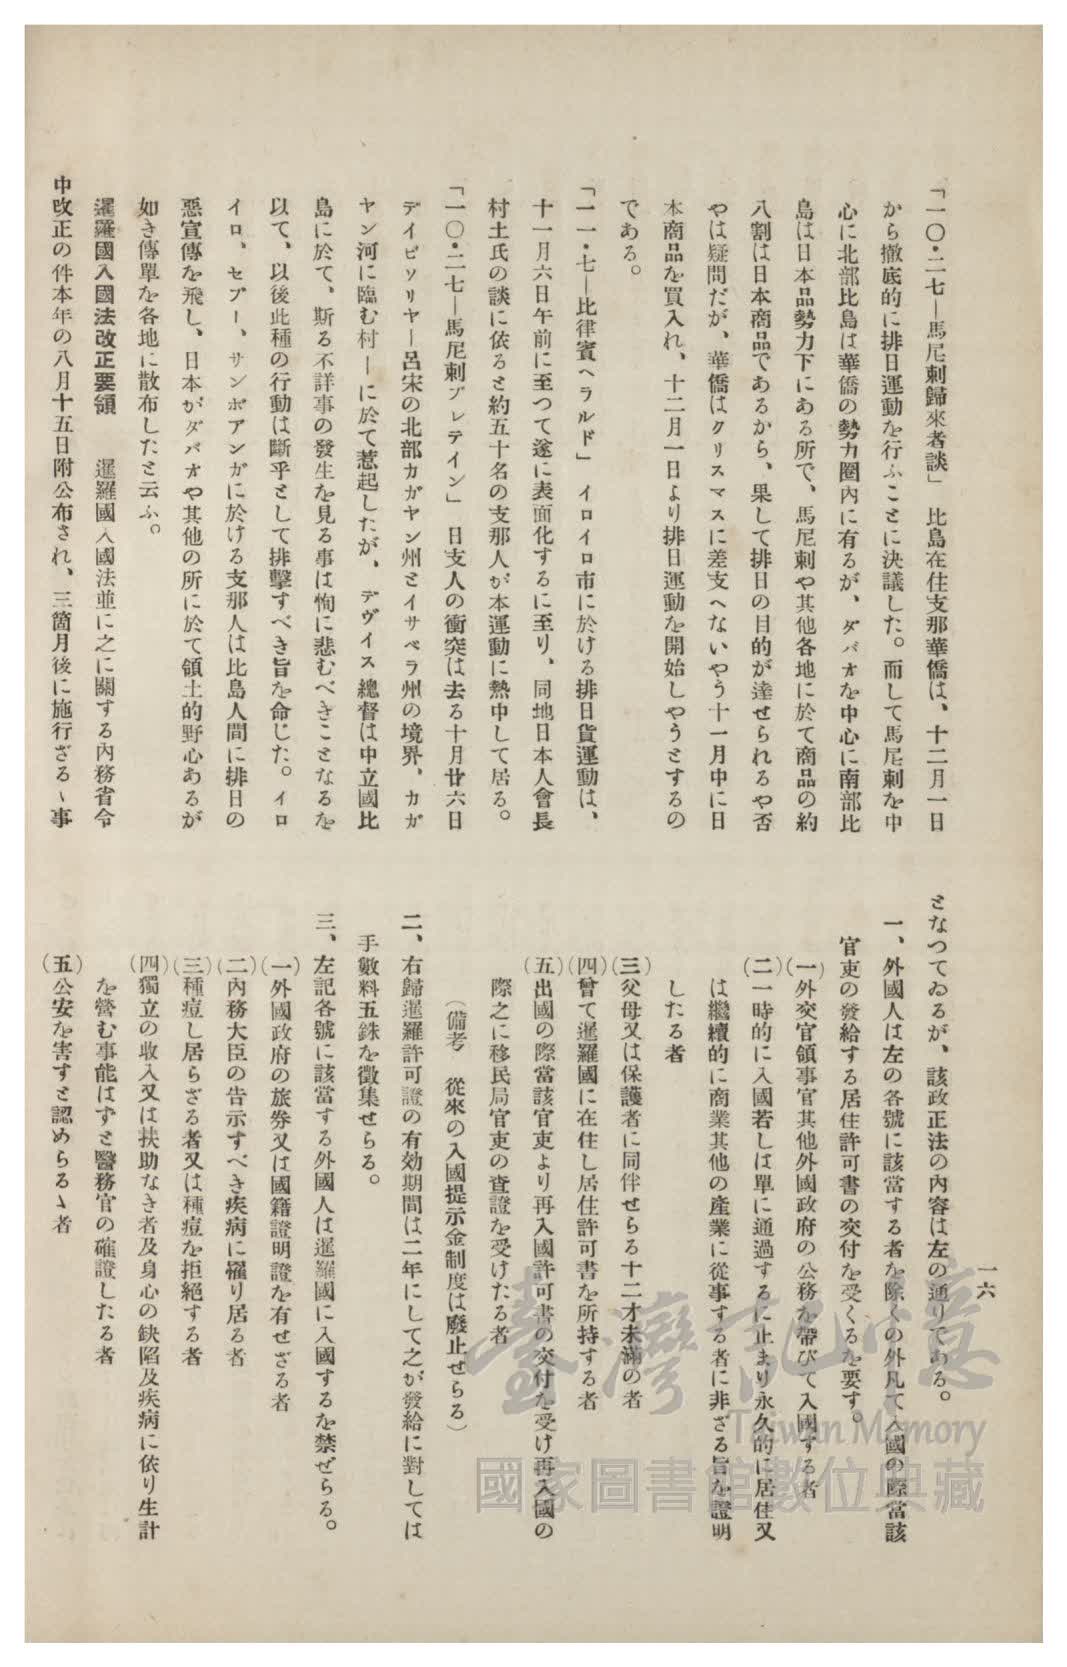 「一〇・二七―馬尼剌歸來者談」 比島在住支那華僑は、十二月一日
から撤底的に排日運動を行ふことに決議した。而して馬尼剌を中
心に北部比島は華僑の勢力圈內に有るが、ダバオを中心に南部比
島は日本品勢力下にある所で、馬尼剌や其他各地に於て商品の約
八割は日本商品であるから、果して排日の目的が達せられるや否
やは疑問だが、華僑はクリスマスに差支へないやう十一月中に日
本商品を買入れ、十二月一日より排日運動を開始しやうとするの
である。
「一一・七―比律賓ヘラルド」 イロイロ市に於ける排日貨運動は、
十一月六日午前に至つて遂に表面化するに至り、同地日本人會長
村土氏の談に依ると約五十名の支那人が本運動に熱中して居る。
「一〇・二七―馬尼剌ブレテイン」 日支人の衝突は去る十月廿六日
デイビソリヤ―呂宋の北部カガヤン州とイサベラ州の境界、カガ
ヤン河に臨む村―に於て惹起したが、デヴイス總督は中立國比
島に於て、斯る不詳事の發生を見る事は恂に悲むべきことなるを
以て、以後此種の行動は斷乎として排擊すべき旨を命じた。イロ
イロ、セブー、サンボアンガに於ける支那人は比島人間に排日の
惡宣傳を飛し、日本がダバオや其他の所に於て領土的野心あるが
如き傳單を各地に散布したと云ふ。
暹羅國入國法改正要領 暹羅國入國法並に之に關する內務省令
中改正の件本年の八月十五日附公布され、三箇月後に施行ざるゝ事
となつてゐるが、該政正法の內容は左の通りである。
一、外國人は左の各號に該當する者を除くの外凡て入國の際當該
官吏の發給する居住許可書の交付を受くるを要す。
(一)外交官領事官其他外國政府の公務を帶びて入國する者
(二)一時的に入國若しは單に通過するに止まり永久的に居住又
は繼續的に商業其他の產業に從事する者に非ざる旨を證明
したる者
(三)父母又は保護者に同伴せらる十二才未滿の者
(四)曾て暹羅國に在住し居住許可書を所持する者
(五)出國の際當該官吏より再入國許可書の交付を受け再入國の
際之に移民局官吏の査證を受けたる者
(備考 從來の入國提示金制度は廢止せらる)
二、右歸暹羅許可證の有効期間は二年にして之が發給に對しては
手數料五銖を徵集せらる。
三、左記各號に該當する外國人は暹羅國に入國するを禁ぜらる。
(一)外國政府の旅券又は國籍證明證を有せざる者
(二)內務大臣の告示すべき疾病に罹り居る者
(三)種痘し居らざる者又は種痘を拒絕する者
(四)獨立の收入又は扶助なき者及身心の缺陷及疾病に依り生計
を營む事能はずと醫務官の確證したる者
(五)公安を害すと認めらるゝ者
一六
臺灣記憶
Taiwan Memory
國家圖書館數位典藏